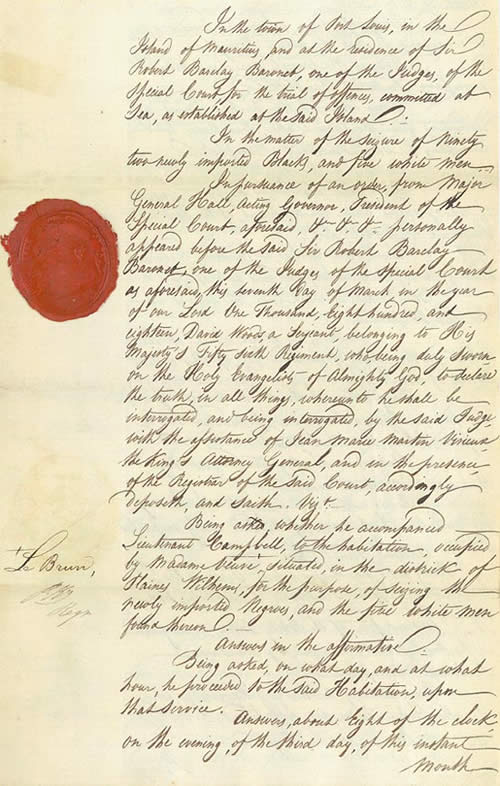 In the town of Port Louis, in the
Island of Mauritius, and at the residence of Sir
Robert Barclay Baronet, one of the Judges, of the
Special Court, for the trial of offences, committed at
Sea, as established at the said Island.
In the matter of the seizure of Ninety
two newly imported Blacks, and five white men
In pursuance of an order, from Major
General Hall, Acting Governor, President of the
Special Court, aforesaid, &. &. &. personally
appeared before the said Sir Robert Barclay
Baronet, one of the Judges of the Special Court
as aforesaid, this seventh Day of March in the year
of our Lord One Thousand, Eight hundred, and
eighteen, David Woods, a Serjeant, belonging to His
Majesty's Fifty sixth Regiment, who, being duly sworn
on the Holy Evangelists of Almighty God, to declare
the truth, in all things, whereunto he shall be
interrogated, and being interrogated, by the said Judge
with the assistance of Jean Marie Martin Virieux
the King's Attorney General, and in the presence
of the Registrar of the said Court, accordingly
deposeth, and saith. Vizt.
Being asked, whether he accompanied
Lieutenant Campbell, to the habitation, occupied
by Madame
situated, in the district of
Plaines Wilhems, for the purpose, of seizing the
newly imported Negroes, and the five white men
found thereon.
Answers in the affirmative
Being asked, on what day, and at what
hour, he proceeded to the said Habitation, upon
that service.
Answers, about Eight of the clock
on the evening, of the third day, of this instant
Month
+ Le Brun,